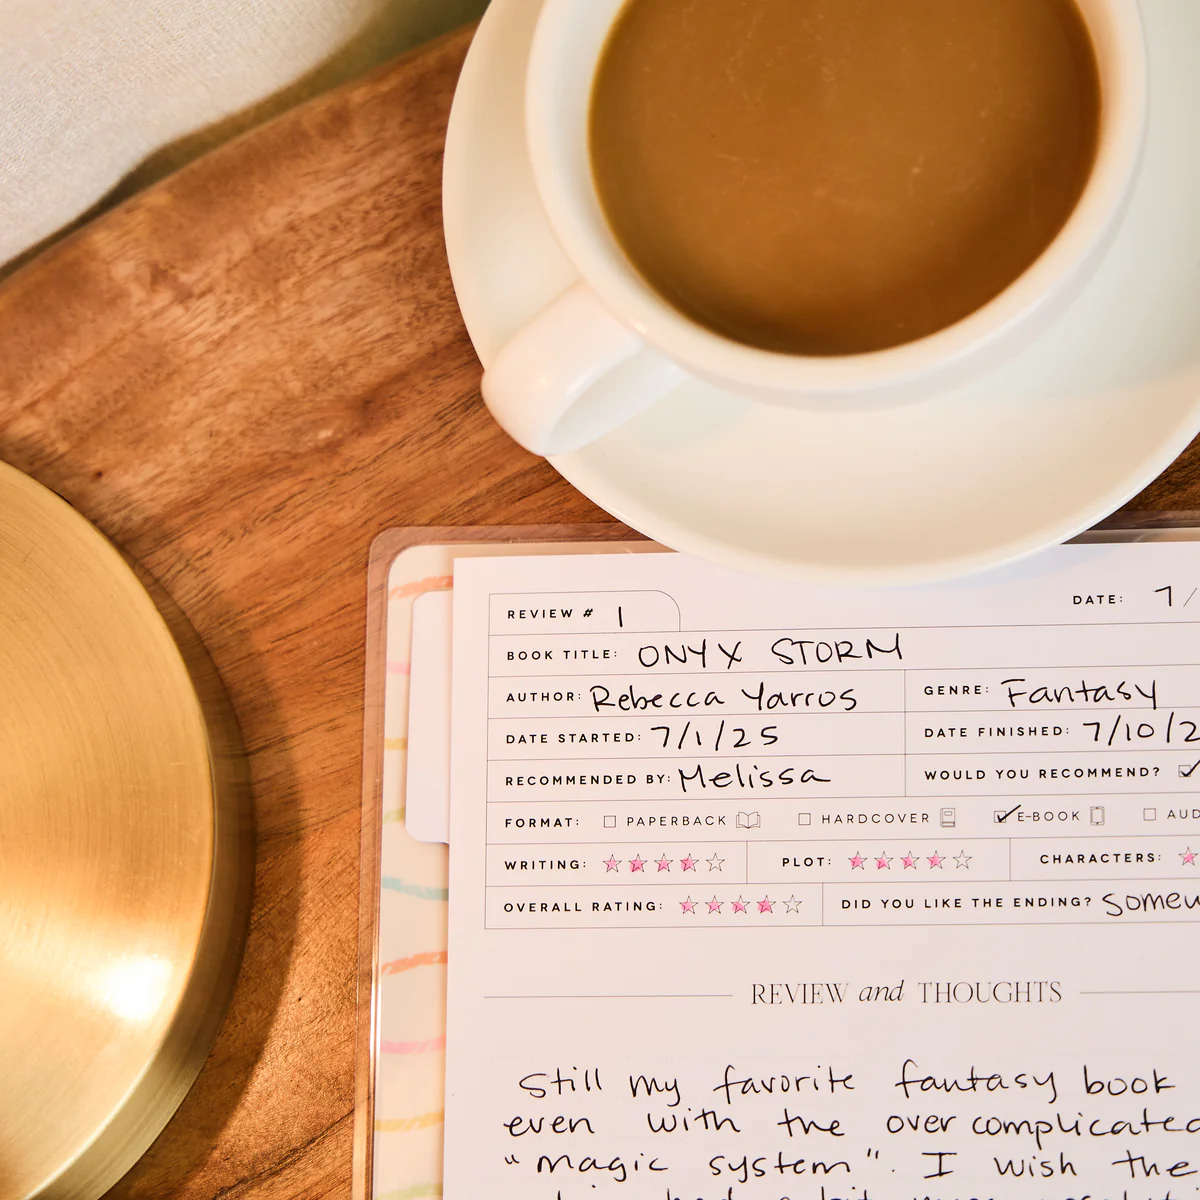 REVIEW # 1 DATE: 7/
BOOK TITLE: ONYX STORM
AUTHOR: Rebecca Yarros GENRE: Fantasy
DATE STARTED: 7/1/25 DATE FINISHED: 7/10/2
RECOMMENDED BY: Melissa WOULD YOU RECOMMEND?
FORMAT: PAPERBACK HARDCOVER E-BOOK AUD
WRITING: PLOT: CHARACTERS:
OVERALL RATING: DID YOU LIKE THE ENDING? Somew
REVIEW and THOUGHTS
Still my favorite fantasy book
even with the overcomplicated
"magic system". I wish the